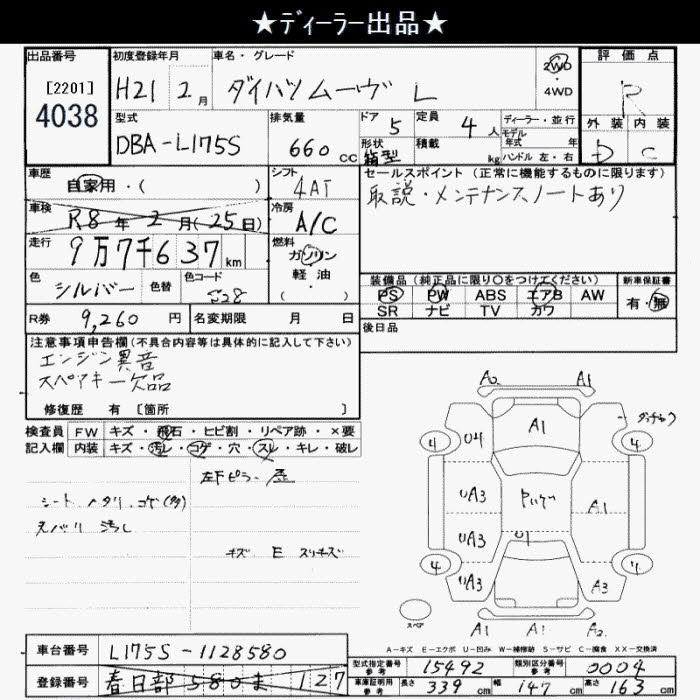 ★ディーラー出品★
出品番号 初度登録年月 車名・グレード 2WD 評価点
[2201] H21 2月 ダイハツムーヴ L ・4WD R
4038 型式 排気量 ドア 5 定員 4人 ディーラー・並行 外装 内装
DBA-L175S 660cc 形状 箱型 積載 kg モデル年式 年 ハンドル 左・右 D C
車歴 自家用・( ) シフト 4AT セールスポイント(正常に機能するものに限ります)
車検 R8年2月(25日) 冷房 A/C 取説・メンテナンスノートあり
走行 9万7千637km 燃料 ガソリン 軽油・( )
色 シルバー 色替 色コード S28 装備品(純正品に限り○をつけてください) 新車保証書
PS PW ABS エアB AW 有・無
SR ナビ TV カワ
R券 9,260円 名変期限 月 日 後日品
注意事項申告欄(不具合内容等は具体的に記入して下さい)
エンジン異音
スペアキー欠品
修復歴 有 [箇所 ]
検査員 FW キズ・飛石・ヒビ割・リペア跡・×要
記入欄 内装 キズ・汚レ・コゲ・穴・スレ・キレ・破レ
左下ピラー
シート ヘタリ.コゲ(多)
汚し
キズ E スリキズ
A2 A1
A1
4 U4 4
UA3 A1
UA3 U1
4 UA3 A3
スペア A1 A1 A2
A-キズ E-エクボ U-凹み W-補修跡 S-サビ C-腐食 XX-交換済
車台番号 L175S-1128580
登録番号 春日部 580 ま 127
型式指定番号 参考 15492 類別区分番号 参考 0004
車庫証明用 参考 長さ 339cm 幅 147cm 高さ 163cm